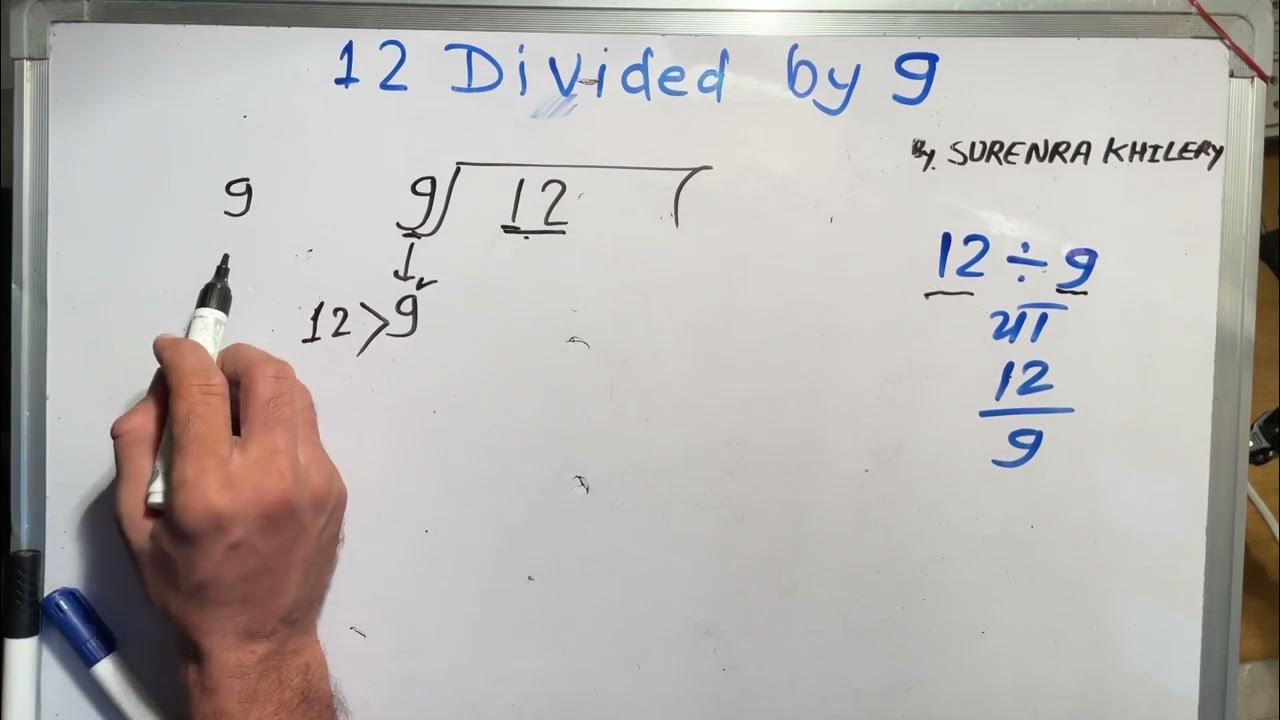 12 Divided by 9
By. SURENRA KHILERY
9
9) 12 (
12>9
12÷9
या
12
9